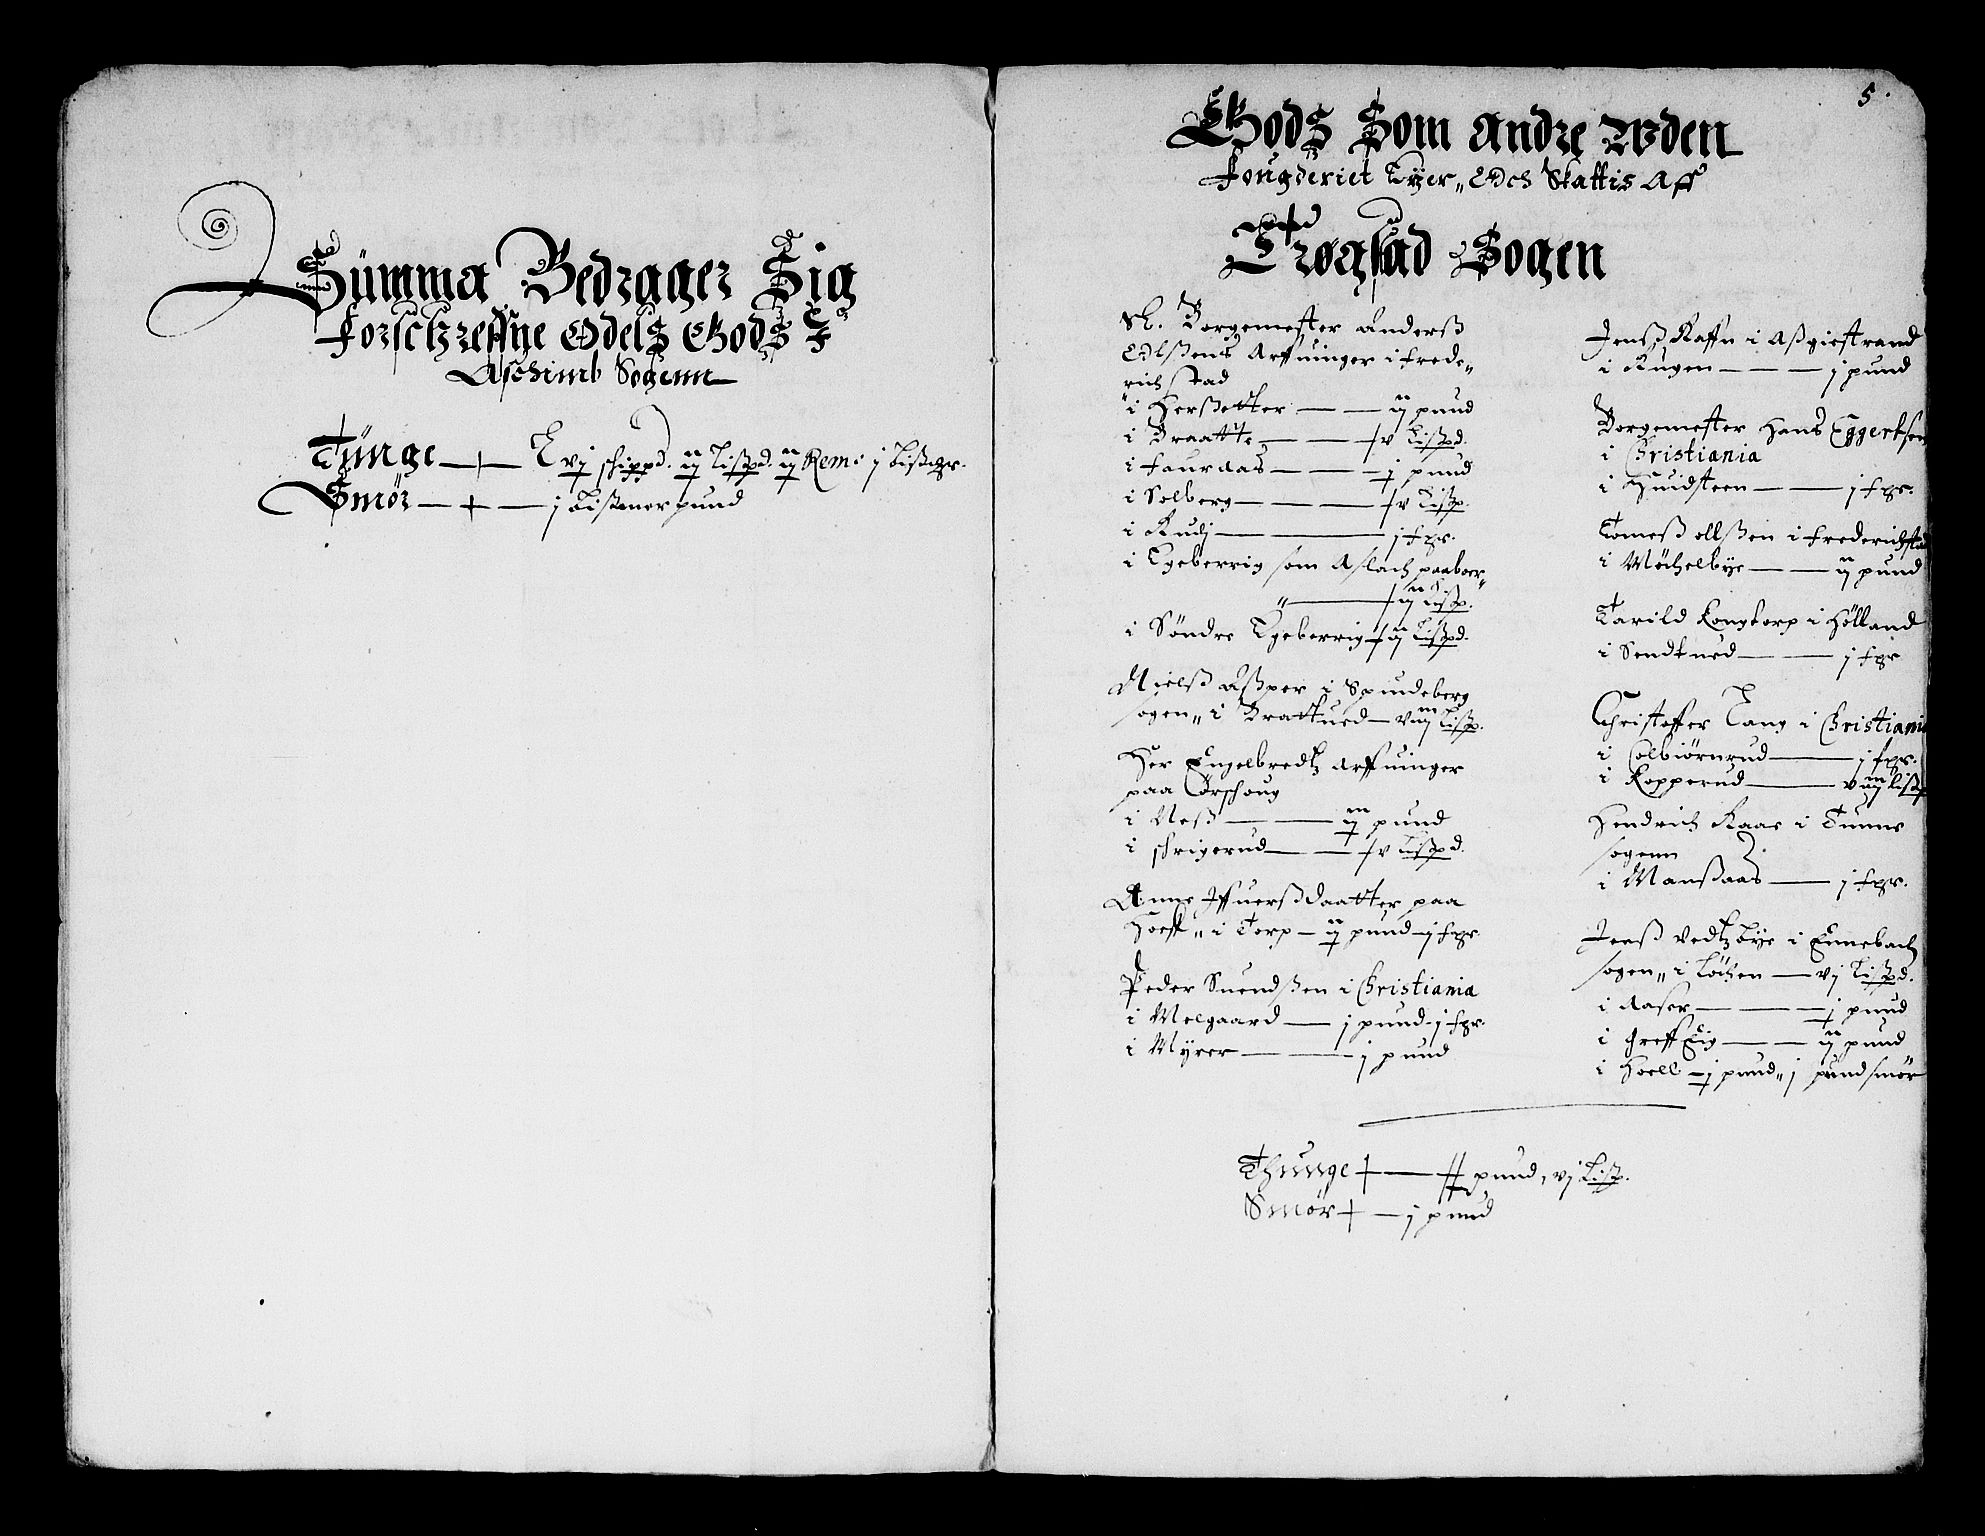 Summa Bedrager Sig
forschreffne Odels Gods I
Aschimb Sogenn
Tunge — vj schippd. ij lißpd. ij Rem: j bißmr.
Smör — j bißmerpund
5.
Gods Som andre Uden
fougderiet Eyer, Och Skattis Aff
Trøgstad Sogen
Sl. Borgemester Anderß
Olßens Arffuinger i frede-
richstad
i Herßetter — ij pund
i Braatte — v lißpd.
i fauraas — j pund
i Solberg — v lißp.
i Rudj — j fpr.
i Egeberrig som Aslach paaboer
„ — lißp.
i Söndre Egeberrig — ij lißpd.
Nielß Aßper i Spindeberg
sogen„ i Brattued — viij lißp.
Her Engelbredtz arffuinger
paa Corshoug
i Neß — iij pund
i skrigerud — v lißpd.
Anne Iffuerßdaatter paa
Hoeff„ i Torp — ij pund — j fpr.
Peder Suendßen i Christiania
i Melgaard — j pund - j fpr.
i Myrer — j pund
Jenß Raffn i Aßgiestrand
i Rugen — j pund
Borgemester Hans Eggertsen
i Christiania
i Huidsteen — j fpr.
Tomeß ollßen i frederichstad
i Möchelbye — ij pund
Tarild Longtorp i Hölland
i Sendtued — j fpr
Christoffer Lang i Christiania
i Colbiörnrud — j fpr.
i Kopperud — viij lißp
Hendrich Kaas i Tunne
sogenn
i Monßaas — j fpr.
Jenß Vedtzbye i Ennebach
sogen„ i Löchen — vj lißpd.
i aaser — j pund
i Greffsig — ij pund
i Hoell — j pund„ j pund smör
Thunge — pund, vj lißp.
Smör — j pund